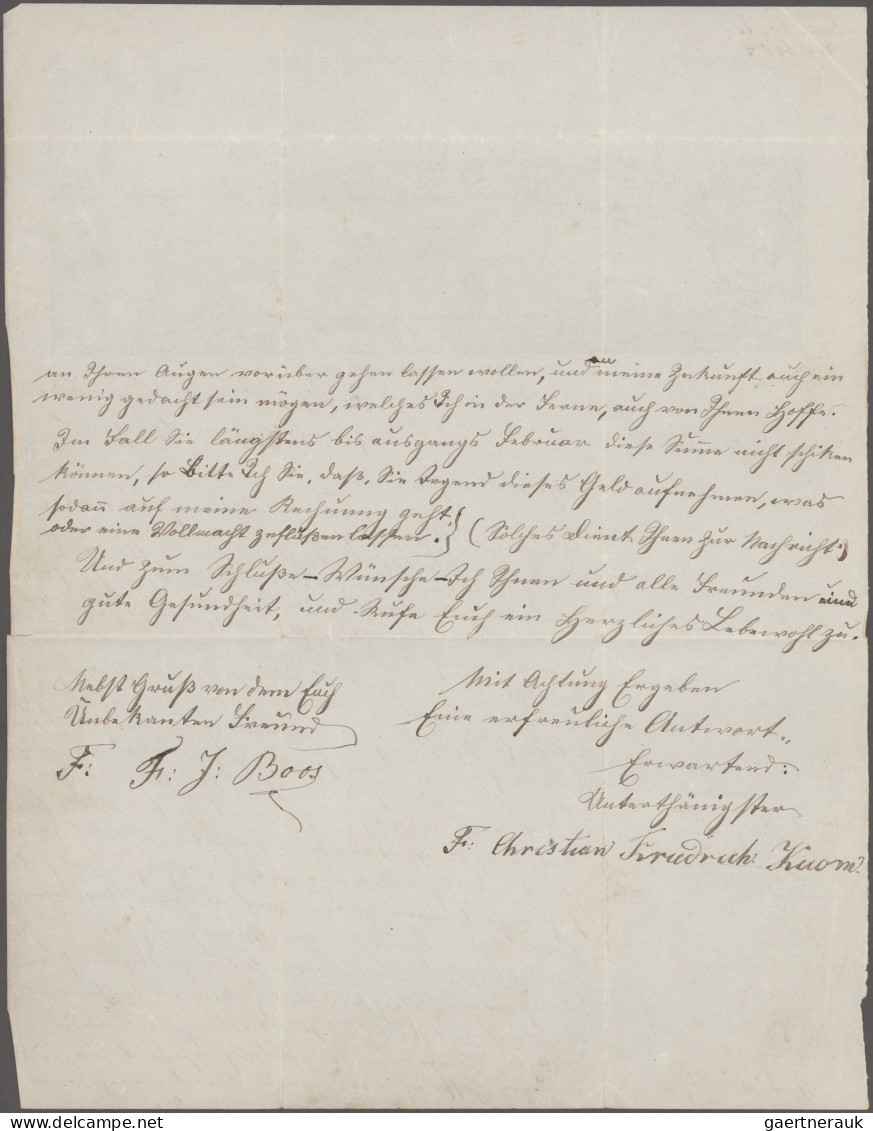 an Ihren Augen vorüber gehen lassen wollen, und an meine Zukunft auch ein
wenig gedacht sein mögen, welches Ich in der Ferne, auch von Ihnen Hoffe.
Im Fall Sie längstens bis ausgangs Februar diese Summe nicht schiken
können, so Bitte Ich Sie, daß, Sie Irgend dieses Geld aufnehmen, was
sodann auf meine Rechnung geht.
oder eine Vollmacht zuflüßen lassen. } (Solches Dient Ihnen zur Nachricht.)
Und zum Schluße - Wünsche - Ich Ihnen und alle Freunden eine
gute Gesundheit, und Rufe Euch ein Herzliches Lebewohl zu.
Nebst Gruß von dem Euch
Unbekanten Freund
F: F: J: Boos
Mit Achtung Ergeben
Eine erfreuliche Antwort„
Erwartend:
Unterthänigster
F: Christian Friedrich
delcampe.net
gaertnerauk